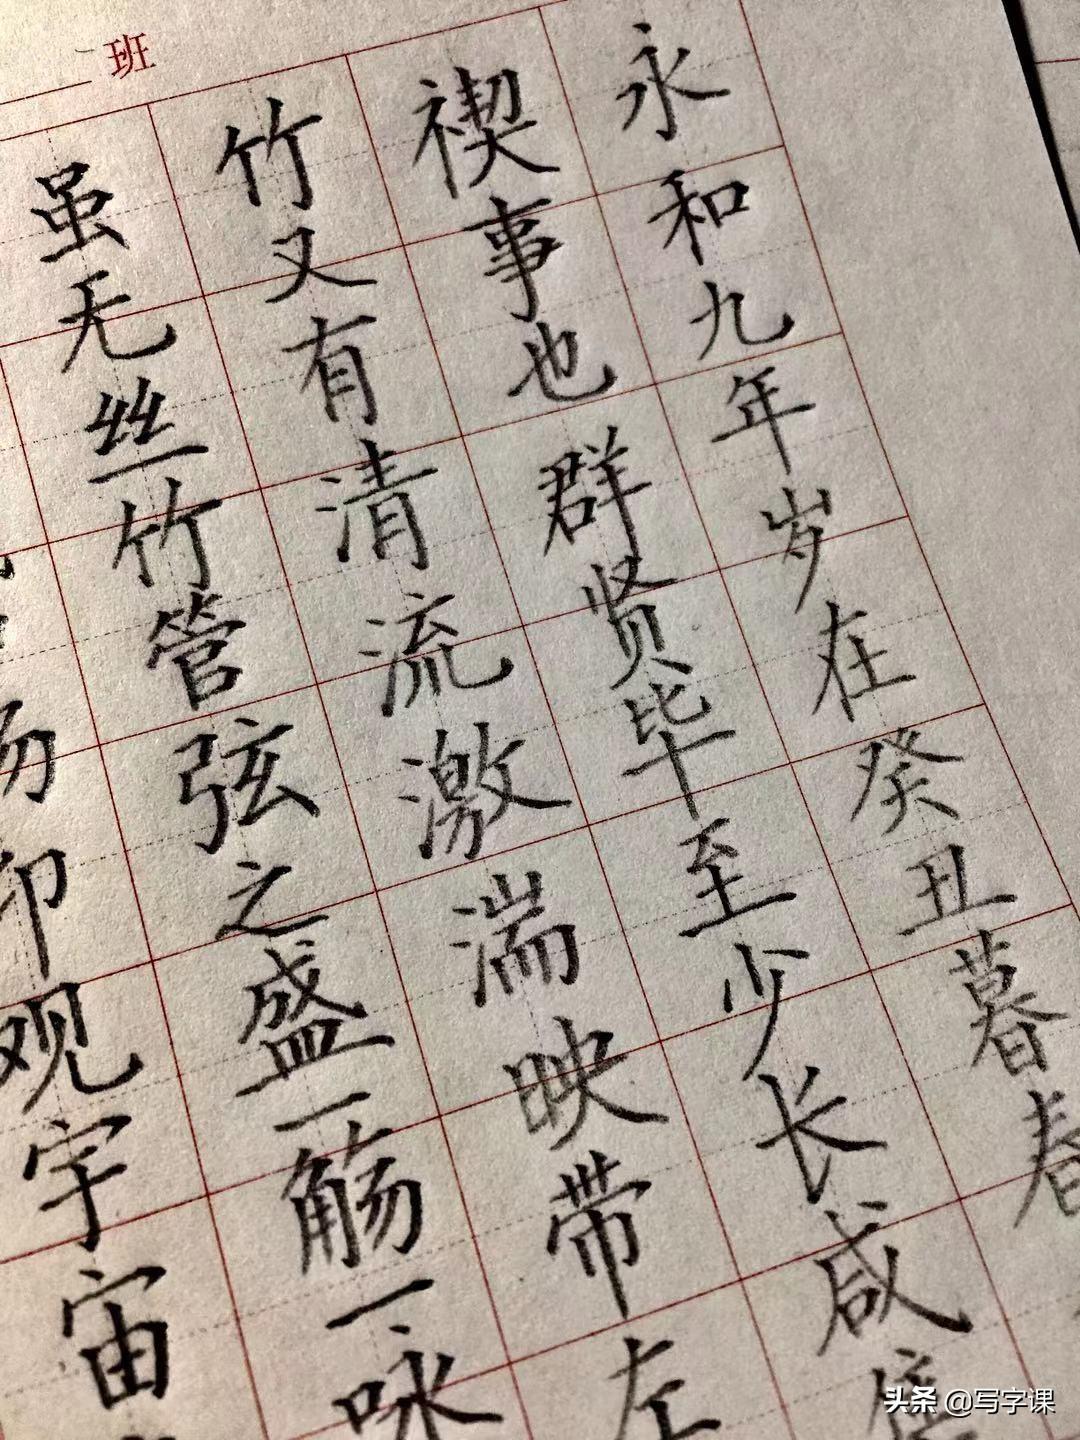 班
永和九年岁在癸丑暮春
禊事也群贤毕至少长咸
竹又有清流激湍映带左
虽无丝竹管弦之盛一觞一咏
观宇宙
头条 @写字课